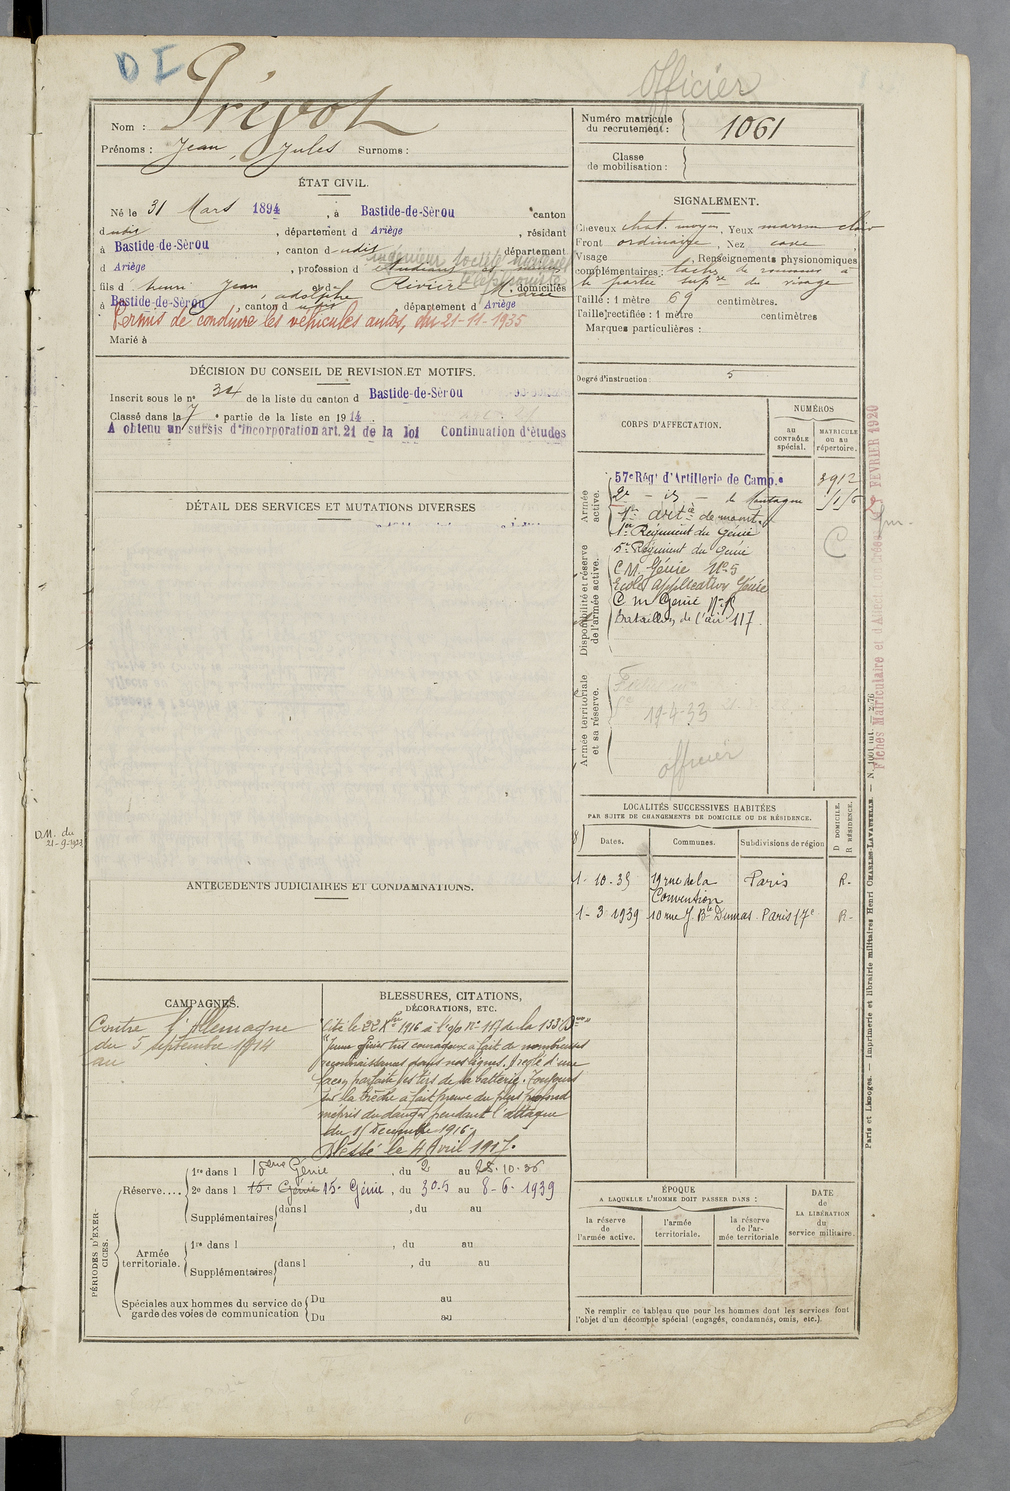 DI
Officier
Nom : Prévot
Prénoms : Jean, Jules Surnoms :
ÉTAT CIVIL.
Né le 31 Mars 1894, à Bastide-de-Sèrou canton
dudit, département d Ariège, résidant
à Bastide-de-Sèrou, canton d udit département
ingénieur Société
d Ariège, profession d étudiant
téléphoniste
fils d henri Jean adolphe et de Rivière Marie, domiciliés
à Bastide-de-Sèrou, canton d udit département d Ariège
Permis de conduire les véhicules autos, du 21-11-1935
Marié à
DÉCISION DU CONSEIL DE REVISION ET MOTIFS.
Inscrit sous le n° 34 de la liste du canton d Bastide-de-Sèrou
Classé dans la 7 e partie de la liste en 1914.
A obtenu un sursis d'incorporation art. 21 de la loi Continuation d'études
DÉTAIL DES SERVICES ET MUTATIONS DIVERSES
D.M. du
21-9-1923
ANTÉCÉDENTS JUDICIAIRES ET CONDAMNATIONS.
CAMPAGNES.
Contre l'Allemagne
du 5 septembre 1914
au
BLESSURES, CITATIONS,
DÉCORATIONS, ETC.
Cité le 22 Xbre 1916 à l'o/o N° 117 de la 133e Don
"Jeune officier très courageux a fait de nombreuses
reconnaissances dans nos lignes. A réglé d'une
façon parfaite les tirs de sa batterie. Toujours
sur la brèche a fait preuve du plus profond
mépris du danger pendant l'attaque
du 15 Décembre 1916.
Blessé le 4 Avril 1917.
PÉRIODES D'EXERCICES.
Réserve....
1re dans l 18ème Génie, du 2 au 28.10.36
2e dans l 15. Génie 15. Génie, du 30.5 au 8-6-1939
Supplémentaires dans l , du au
Armée territoriale.
1re dans l , du au
Supplémentaires dans l , du au
Spéciales aux hommes du service de garde des voies de communication
Du au
Du au
Numéro matricule du recrutement : 1061
Classe de mobilisation :
SIGNALEMENT.
Cheveux chat. moyen, Yeux marron clair
Front ordinaire, Nez cave
Visage , Renseignements physionomiques
complémentaires : tache de rousseur à
la partie supre du visage
Taille : 1 mètre 69 centimètres.
Taille rectifiée : 1 mètre centimètres
Marques particulières :
Degré d'instruction : 5
CORPS D'AFFECTATION.
NUMÉROS
au CONTRÔLE spécial.
MATRICULE ou au répertoire.
Armée active.
57e Régt d'Artillerie de Camp.e 3912
2e — id — de Montagne
1er Artie de mont.
1er Régiment du Génie
5e Régiment du Génie
C
Disponibilité et réserve de l'armée active.
C M. Génie N° 5
Ecole application Génie
C m Génie N° 13
Bataillon de l'air 117.
Armée territoriale et sa réserve.
19-4-33
officier
Fiches Matriculaire et d'Affect on Créées FEVRIER 1929
LOCALITÉS SUCCESSIVES HABITÉES
PAR SUITE DE CHANGEMENTS DE DOMICILE OU DE RÉSIDENCE.
Dates. Communes. Subdivisions de région D DOMICILE. R RÉSIDENCE.
1-10-35 19 rue de la Convention Paris R-
1-3-1939 10 rue J. Bte Dumas Paris 17e R-
ÉPOQUE
A LAQUELLE L'HOMME DOIT PASSER DANS :
DATE de LA LIBÉRATION du service militaire.
la réserve de l'armée active.
l'armée territoriale.
la réserve de l'armée territoriale
Ne remplir ce tableau que pour les hommes dont les services font
l'objet d'un décompte spécial (engagés, condamnés, omis, etc.).
Paris et Limoges. — Imprimerie et librairie militaires Henri CHARLES-LAVAUZELLE. — N. 1001 int.